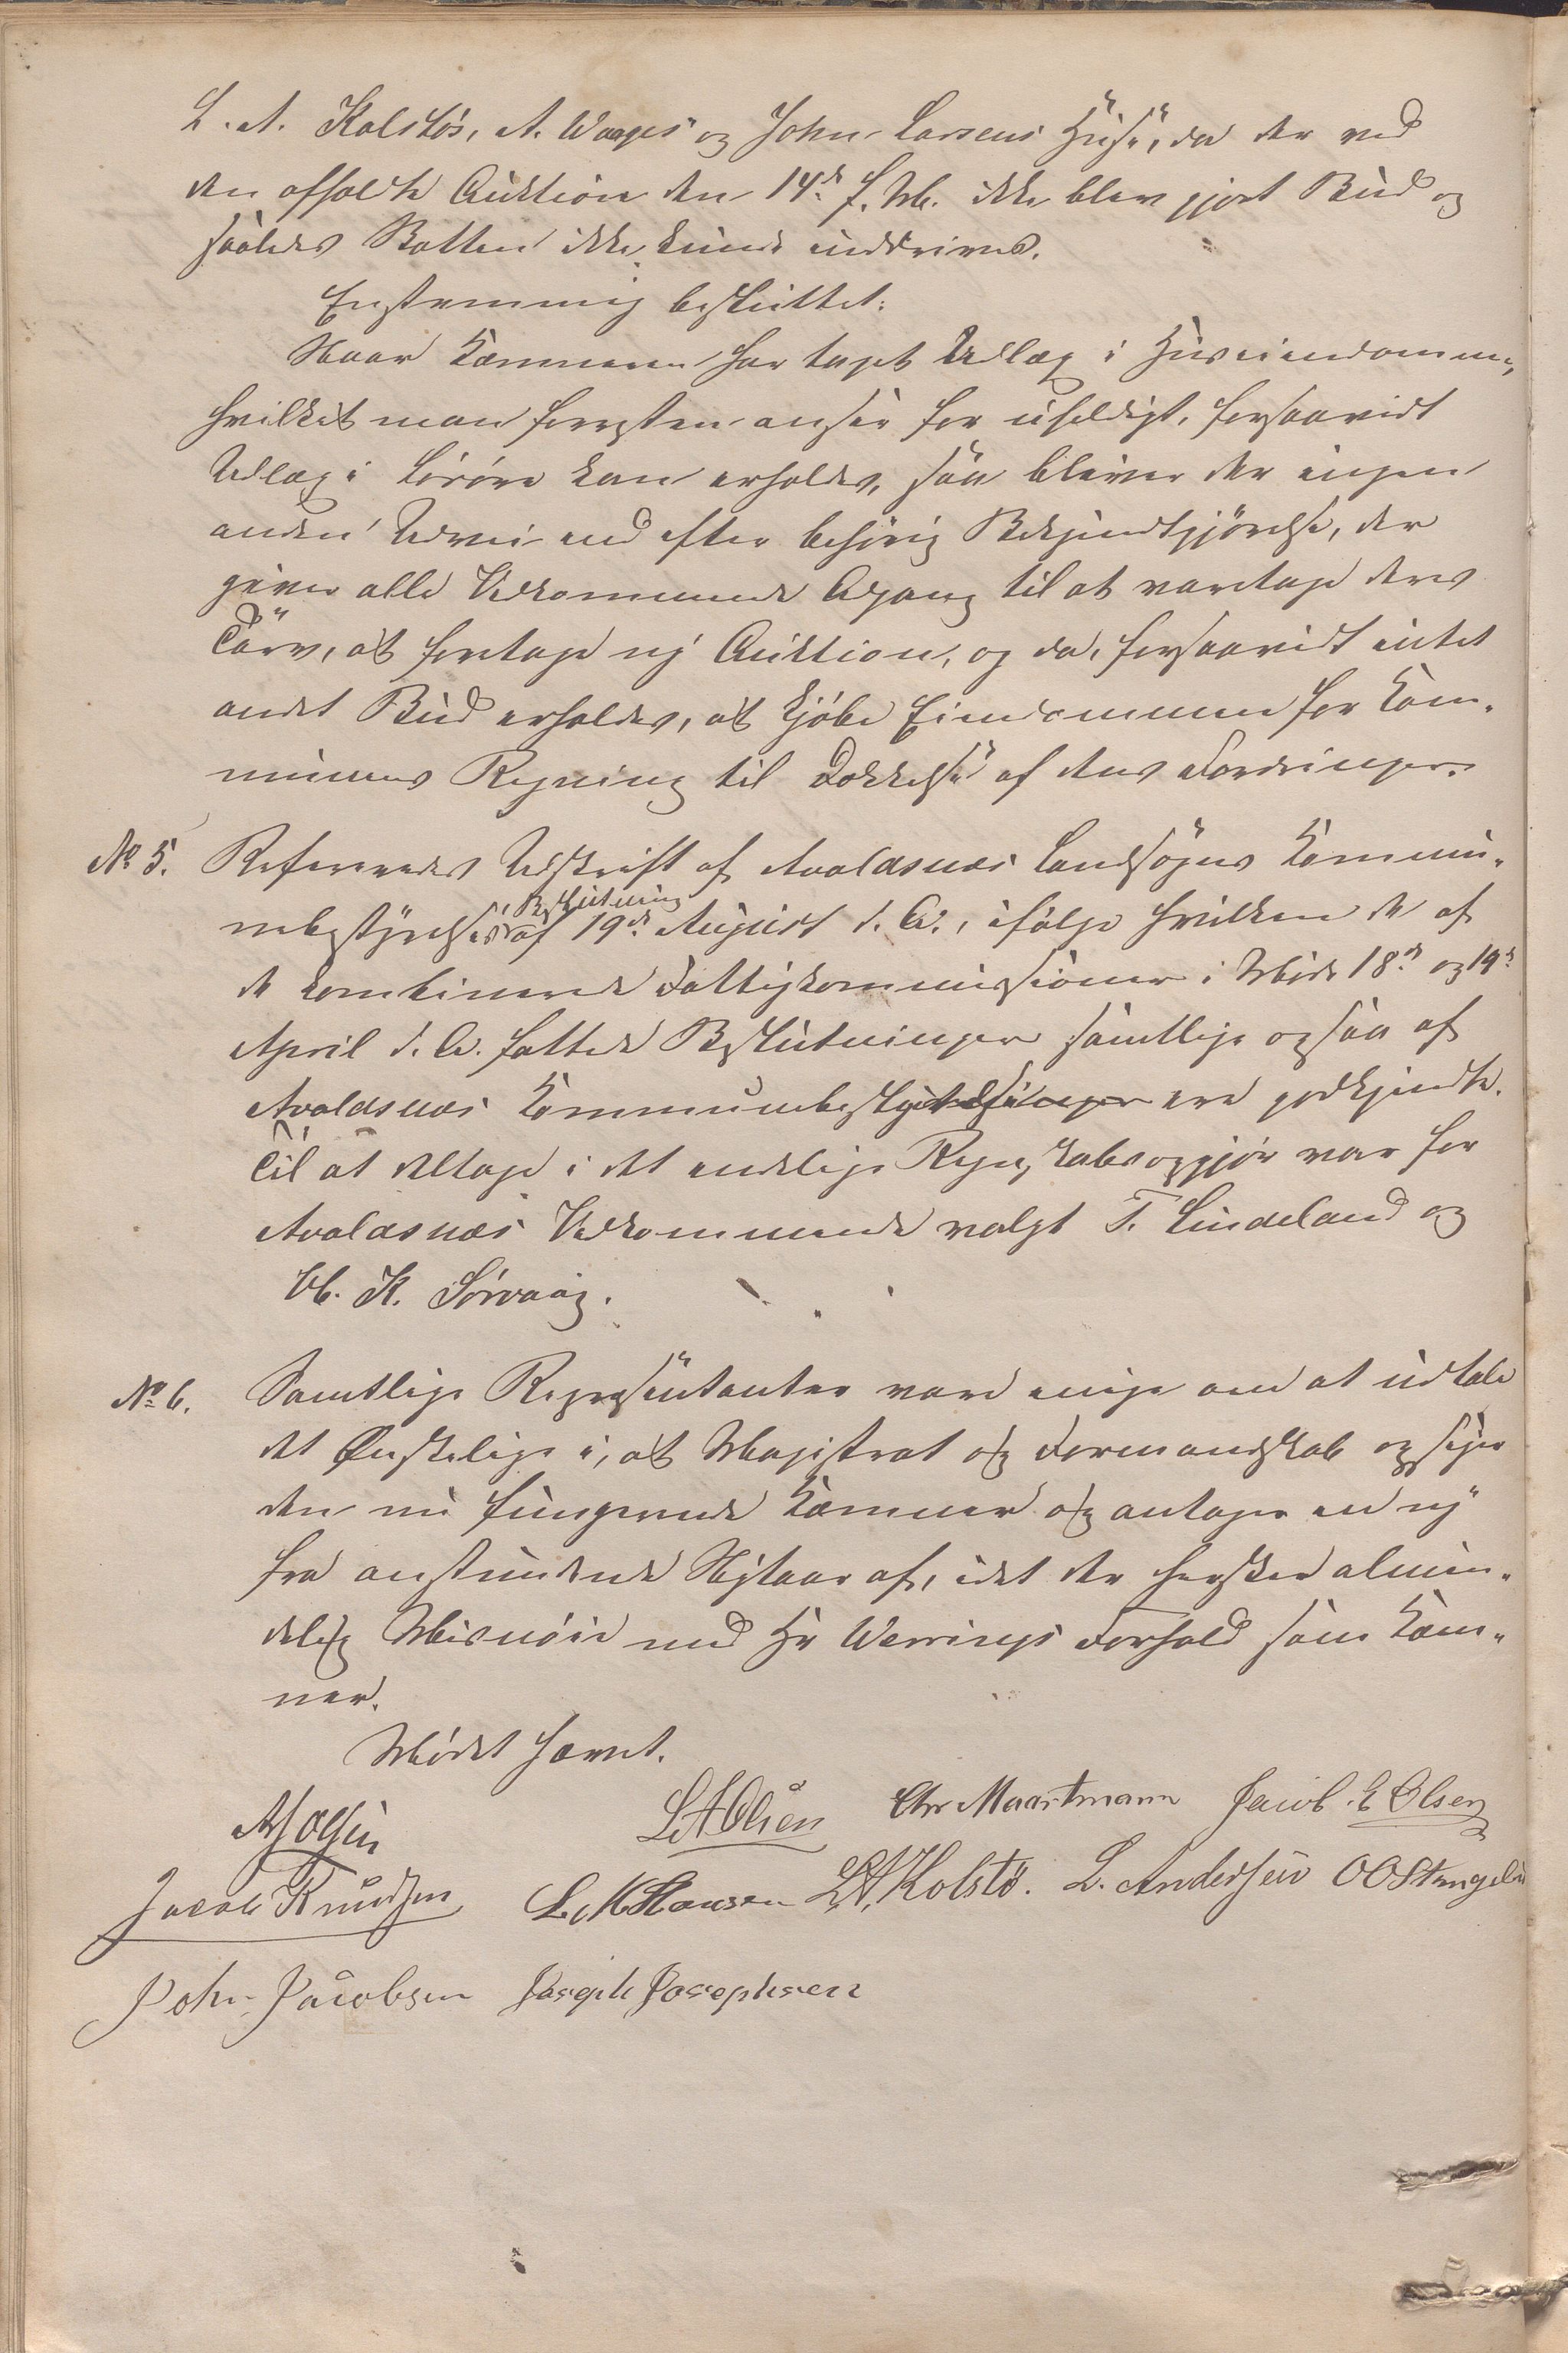 L. A. Kolstøs, A. Waages og John Larsens Huse, da der ved
den afholdte Auktion den 14de f. M. ikke blev gjort Bud og
saaledes Skatten ikke kunde inddrives.
Enstemmig besluttet:
Naar Kæmneren har taget Udlæg i Huseiendommen,
hvilket man forresten anser for uheldigt, forsaavidt
Udlæg i Løsøre kan erholdes, saa bliver der ingen
anden Udvei end efter behørig Bekjendtgjørelse, der
giver alle Vedkommende Adgang til at varetage deres
Tarv, at foretage ny Auktion, og da, forsaavidt intet
andet Bud erholdes, at kjøbe Eiendommen for Kom-
munens Regning til Dækkelse af dens Fordringer.
No 5. Refereredes Udskrift af Avaldsnæs Landsogns Kommu-
nebestyrelses Beslutning af 19de August d. A., ifølge hvilken de af
de kombinerede Fattigkommissioner i Møde 18de og 19de
April d. A. fattede Beslutninger samtlige ogsaa af
Avaldsnæs Kommunebestyrelse ere godkjendte.
Til at deltage i det endelige Regnskabsopgjør var for
Avaldsnæs Vedkommende valgt T. Lindeland og
M. K. Sørvaag.
No 6. Samtlige Repræsentanter vare enige om at udtale
det Ønskelige i, at Magistrat og Formandskab opsiger
den nu fungerende Kæmner og antager en ny
fra anstundende Nytaar af, idet der hersker almin-
delig Misnøie med Hr Werrings Forhold som Kæm-
ner.
Mødet hævet.
L A Olsen Chr Maartmann Jacob E Olsen
Jacob Knudsen L M Hansen L A Kolstø. L. Andersen O O Stangeland
John Jacobsen Joseph Josephsen